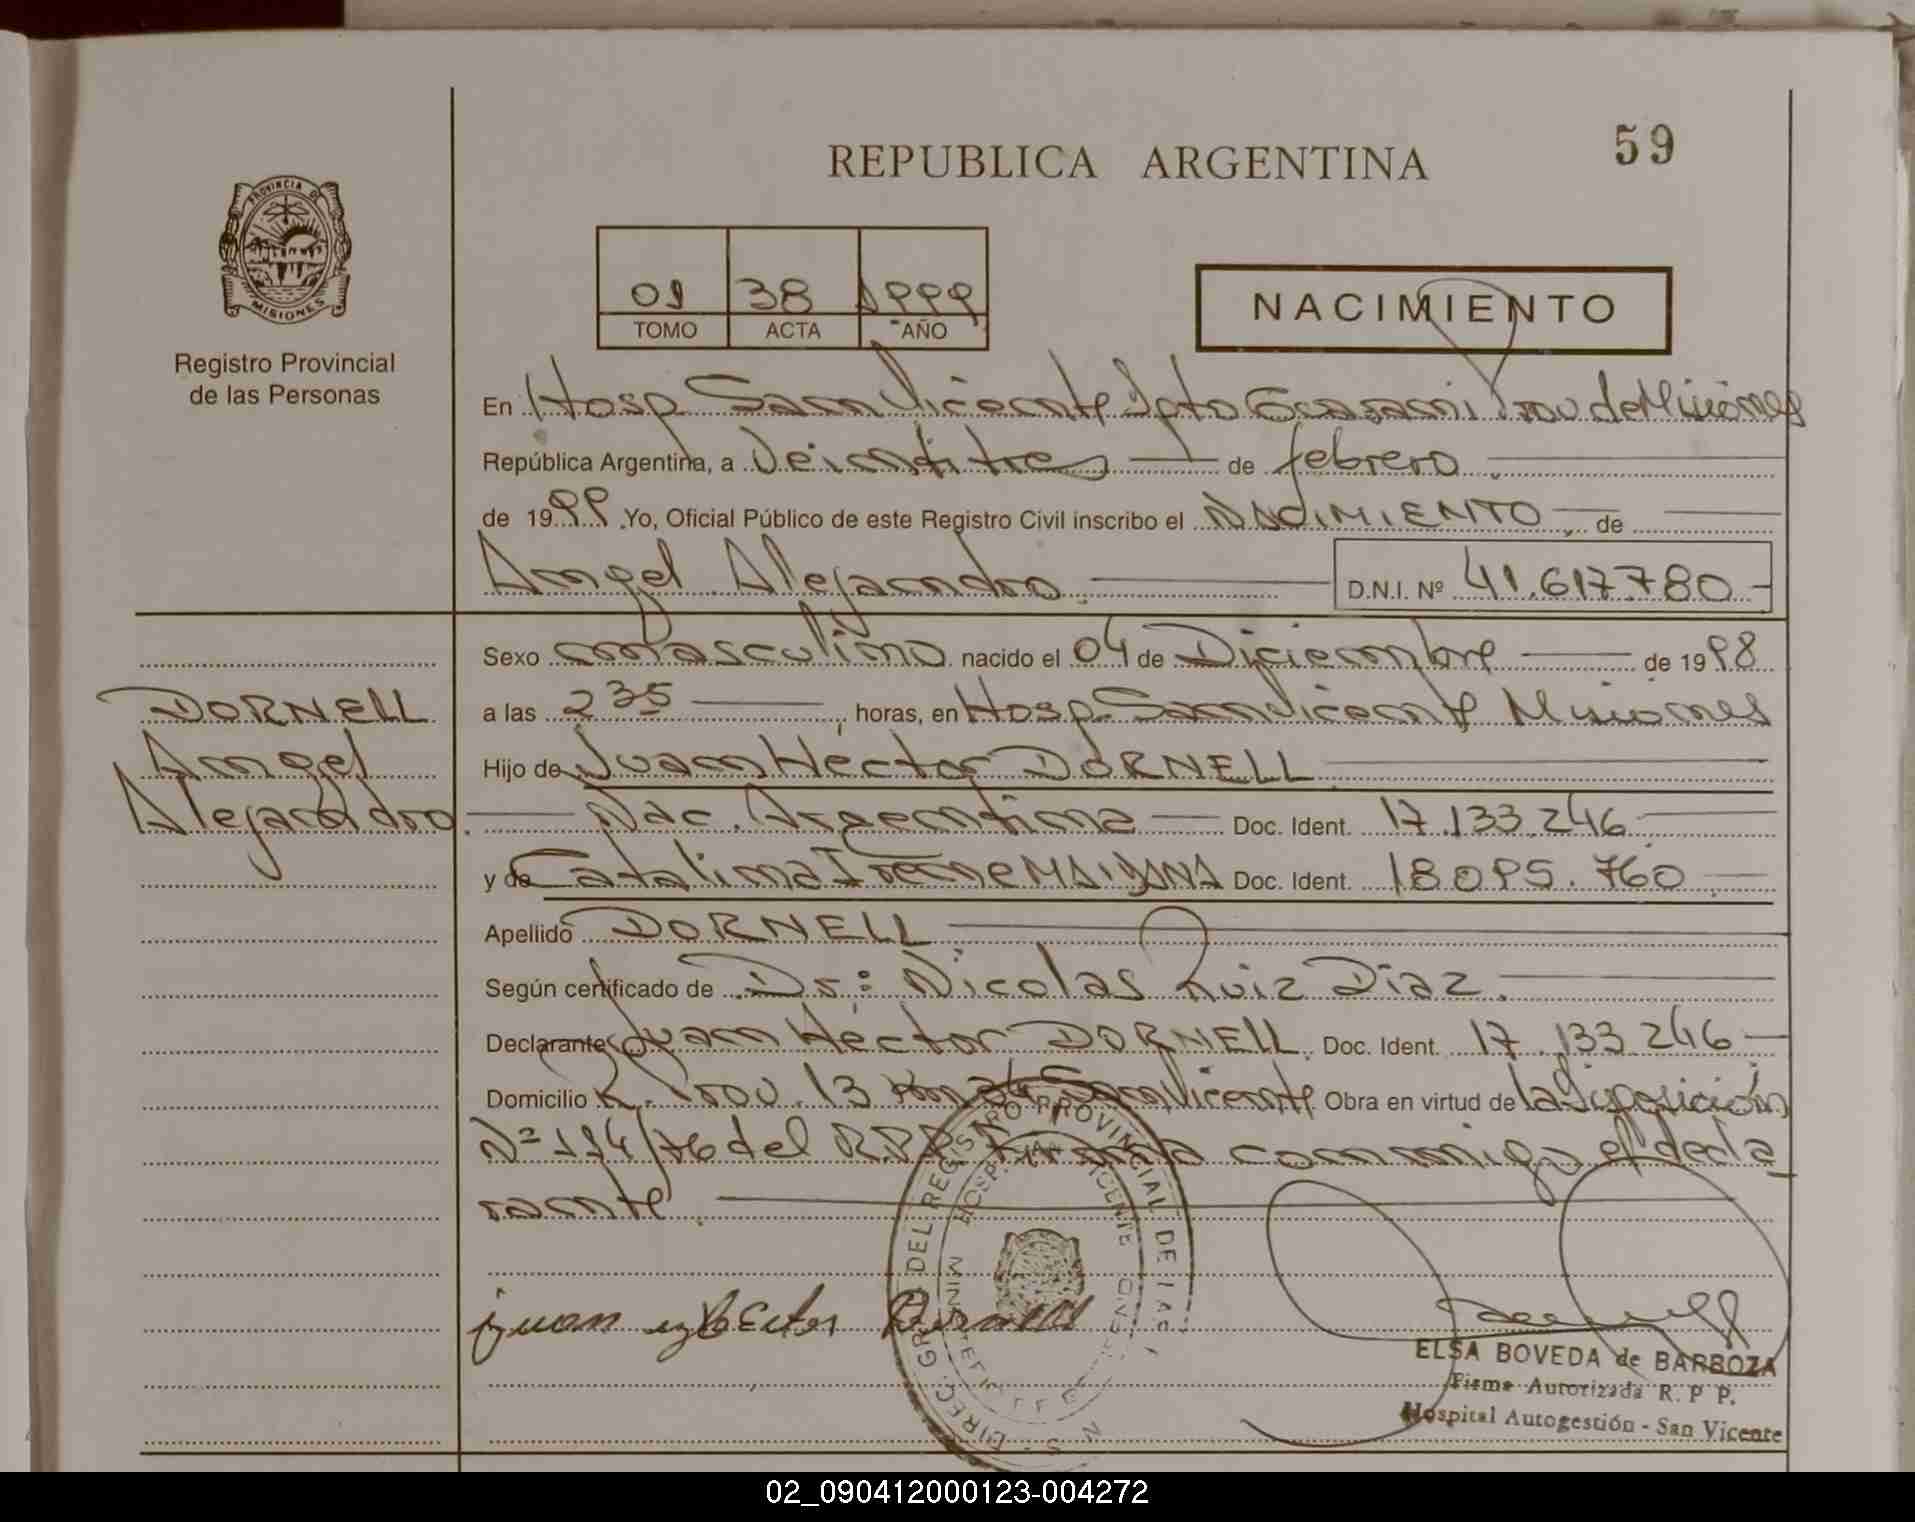 59
REPUBLICA ARGENTINA
PROVINCIA DE
MISIONES
Registro Provincial
de las Personas
01 38 1999
TOMO ACTA AÑO
NACIMIENTO
En Hosp San Vicente Dpto Guarani Prov de Misiones
República Argentina, a Veintitres de febrero
de 1999 Yo, Oficial Público de este Registro Civil inscribo el NACIMIENTO de
Angel Alejandro D.N.I. Nº 41.617.780
Sexo masculino nacido el 04 de Diciembre de 1998
DORNELL
Angel
Alejandro
a las 2 35 horas, en Hosp. San Vicente Misiones
Hijo de Juan Héctor DORNELL
Nac. Argentina Doc. Ident. 17.133.246
y de Catalina Irene Doc. Ident. 18.095.760
Apellido DORNELL
Según certificado de Dr: Nicolas Ruiz Diaz
Declarante Juan Héctor DORNELL Doc. Ident. 17.133.246
Domicilio R. Prov. 13 Km San Vicente Obra en virtud de la Disposición
Nº 114/76 del R.P.P. Firma conmigo el decla
rante.
DIREC. GRAL. DEL REGISTRO PROVINCIAL DE LAS
HOSP. SAN VICENTE
juan Dornell
ELSA BOVEDA de BARBOZA
Firma Autorizada R. P. P.
Hospital Autogestión - San Vicente
02_090412000123-004272